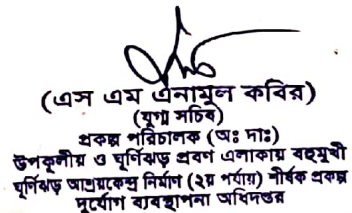 (এস এম এনামুল কবির)
(যুগ্ম সচিব)
প্রকল্প পরিচালক (অঃ দাঃ)
উপকূলীয় ও ঘূর্ণিঝড় প্রবণ এলাকায় বহুমুখী
ঘূর্ণিঝড় আশ্রয়কেন্দ্র নির্মাণ (২য় পর্যায়) শীর্ষক প্রকল্প
দূর্যোগ ব্যবস্থাপনা অধিদপ্তর